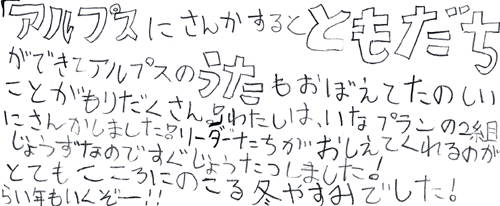 「アルプスにさんかすると ともだち
ができてアルプスの うた もおぼえてたのしい
ことがもりだくさん!!わたしは、いなプランの2組
にさんかしました!!リーダーたちがおしえてくれるのが
じょうずなのですぐじょうたつしました!
とてもこころにのこる冬やすみでした!
らい年もいくぞー!!